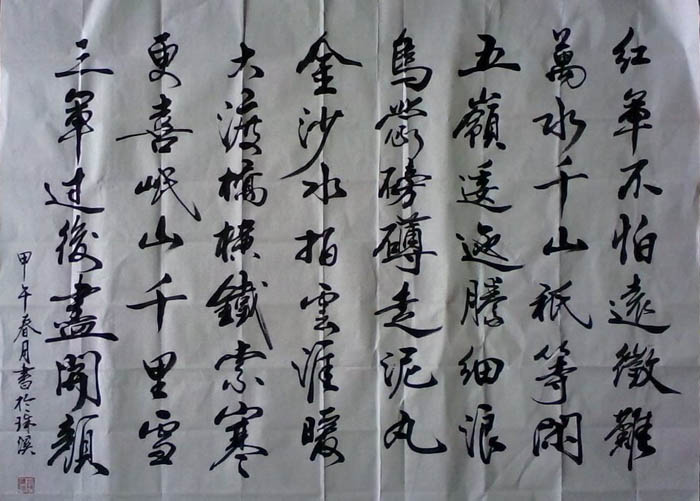 紅軍不怕遠徵難
萬水千山祇等閑
五嶺逶迤騰細浪
烏蒙磅礴走泥丸
金沙水拍雲涯暖
大渡橋橫鐵索寒
更喜岷山千里雪
三軍过後盡開顏
甲午春月書於珠溪